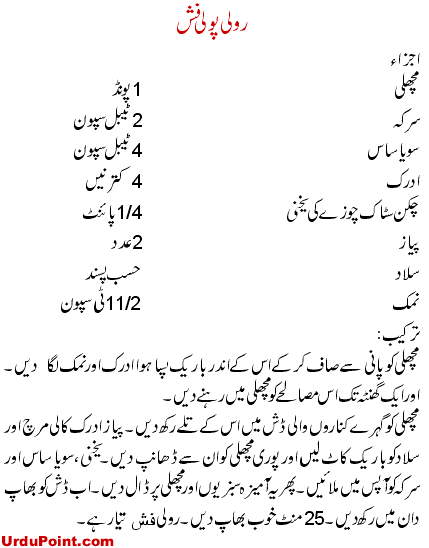 رولی پولی فش
اجزاء
مچھلی 1 پونڈ
سرکہ 2 ٹیبل سپون
سویا ساس 4 ٹیبل سپون
ادرک 4 کترنیں
چکن سٹاک چوزے کی یخنی 1/4 پائنٹ
پیاز 2 عدد
سلاد حسب پسند
نمک 11/2 ٹی سپون
ترکیب:
مچھلی کو پانی سے صاف کر کے اس کے اندر باریک پسا ہوا ادرک اور نمک لگا دیں۔
اور ایک گھنٹہ تک اس مصالحے کو مچھلی میں رہنے دیں۔
مچھلی کو گہرے کناروں والی ڈش میں اس کے تلے رکھ دیں۔ پیاز ادرک کالی مرچ اور
سلاد کو باریک کاٹ لیں اور پوری مچھلی کو ان سے ڈھانپ دیں۔ یخنی، سویا ساس اور
سرکہ کو آپس میں ملائیں۔ پھر یہ آمیزہ سبزیوں اور مچھلی پر ڈال دیں۔ اب ڈش کو بھاپ
دان میں رکھ دیں۔ 25 منٹ خوب بھاپ دیں۔ رولی فش تیار ہے۔
UrduPoint.com